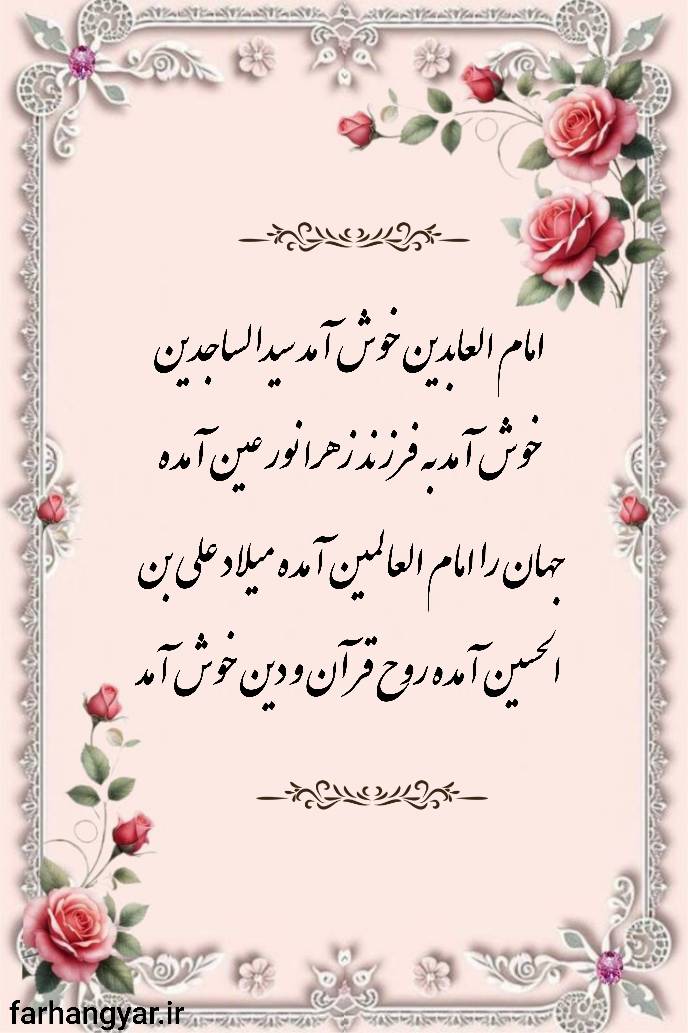 امام العابدین خوش آمد سیدالساجدین
خوش آمد به فرزند زهرا نور عین آمده
جهان را امام العالمین آمده میلاد علی بن
الحسین آمده روح قرآن و دین خوش آمد
farhangyar.ir